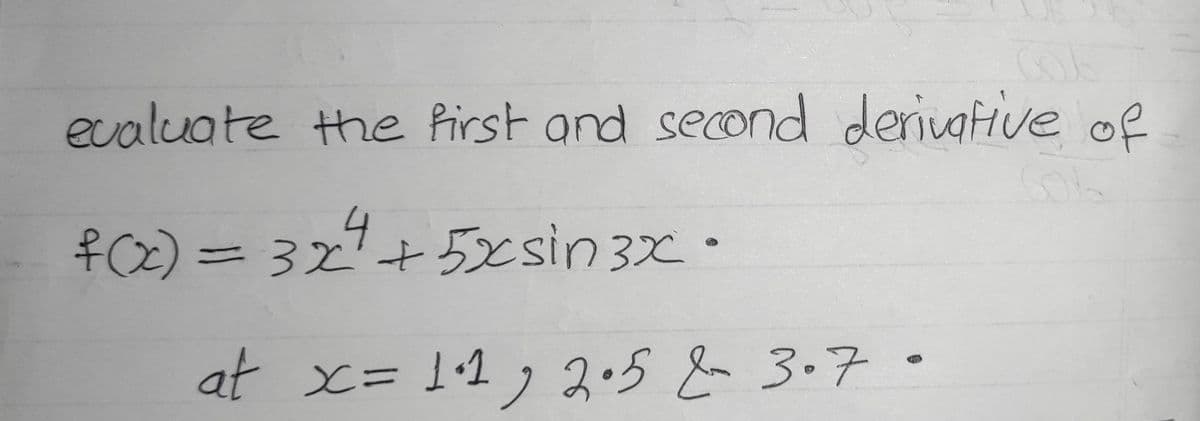 evaluate the first and second derivative of
f(x) = 3x⁴ + 5x sin 3x .
at x = 1.1 , 2.5 & 3.7 .